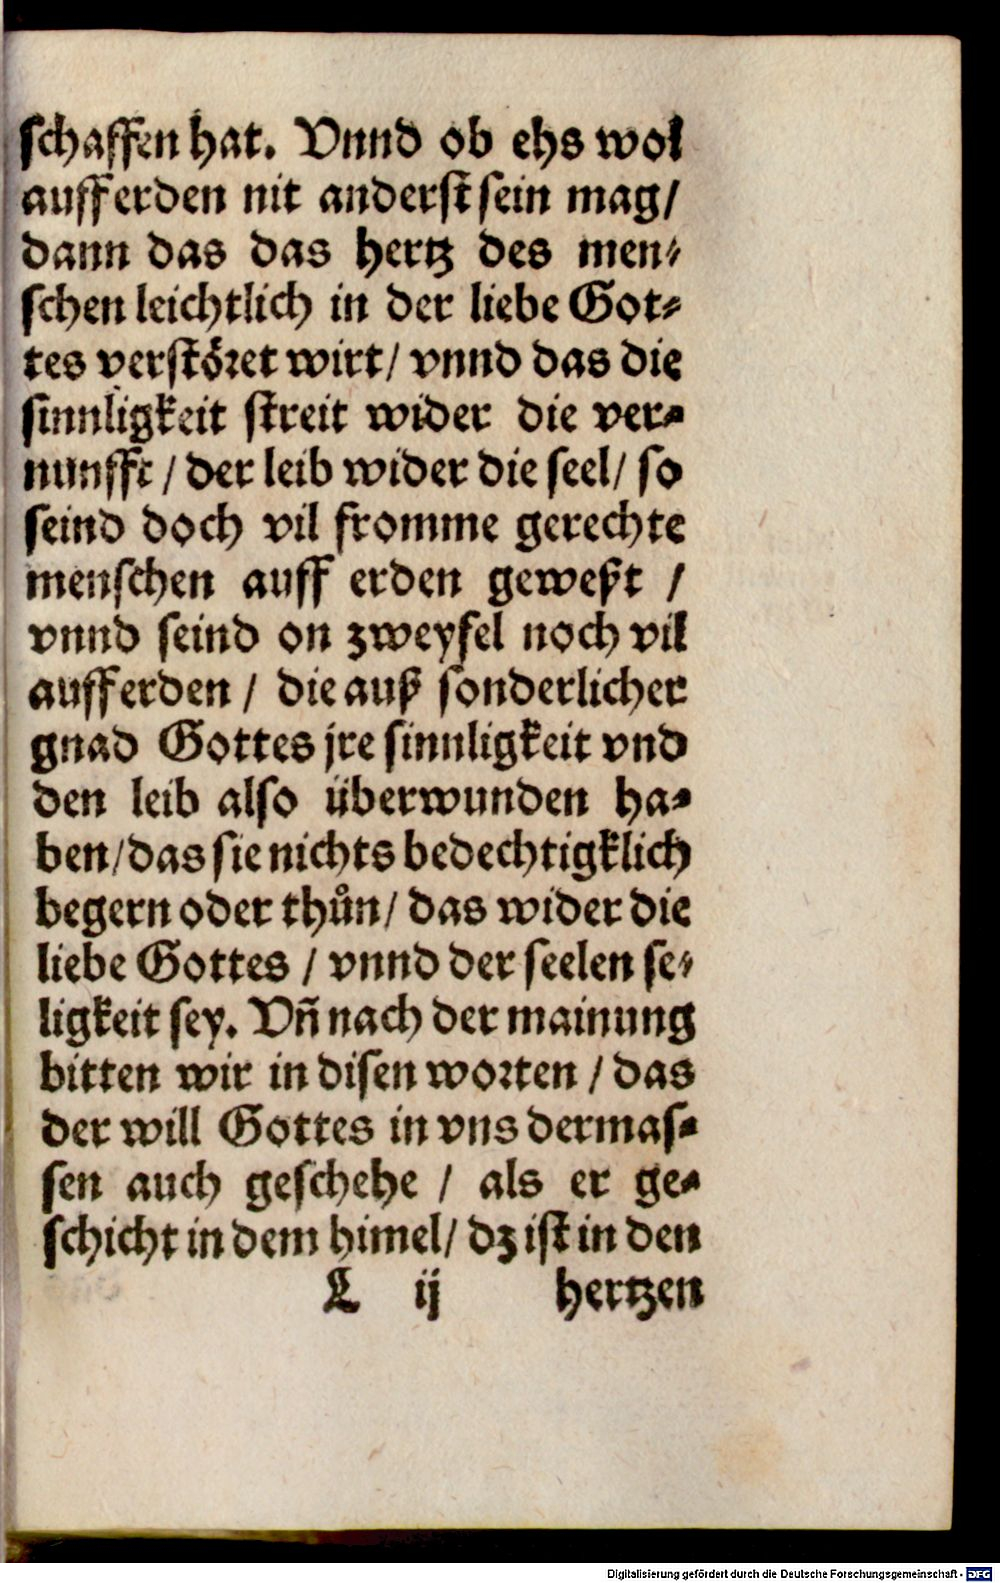 schaffen hat. Vnnd ob ehs wol
auff erden nit anderst sein mag/
dann das das hertz des men-
schen leichtlich in der liebe Got-
tes verstöret wirt/ vnnd das die
sinnligkeit streit wider die ver-
nunfft / der leib wider die seel/ so
seind doch vil fromme gerechte
menschen auff erden geweßt /
vnnd seind on zweyfel noch vil
auff erden / die auß sonderlicher
gnad Gottes jre sinnligkeit vnd
den leib also überwunden ha-
ben/ das sie nichts bedechtigklich
begern oder thůn/ das wider die
liebe Gottes / vnnd der seelen se-
ligkeit sey. Vñ nach der mainung
bitten wir in disen worten / das
der will Gottes in vns dermas-
sen auch geschehe / als er ge-
schicht in dem himel/ dz ist in den
L ij hertzen
Digitalisierung gefördert durch die Deutsche Forschungsgemeinschaft - DFG